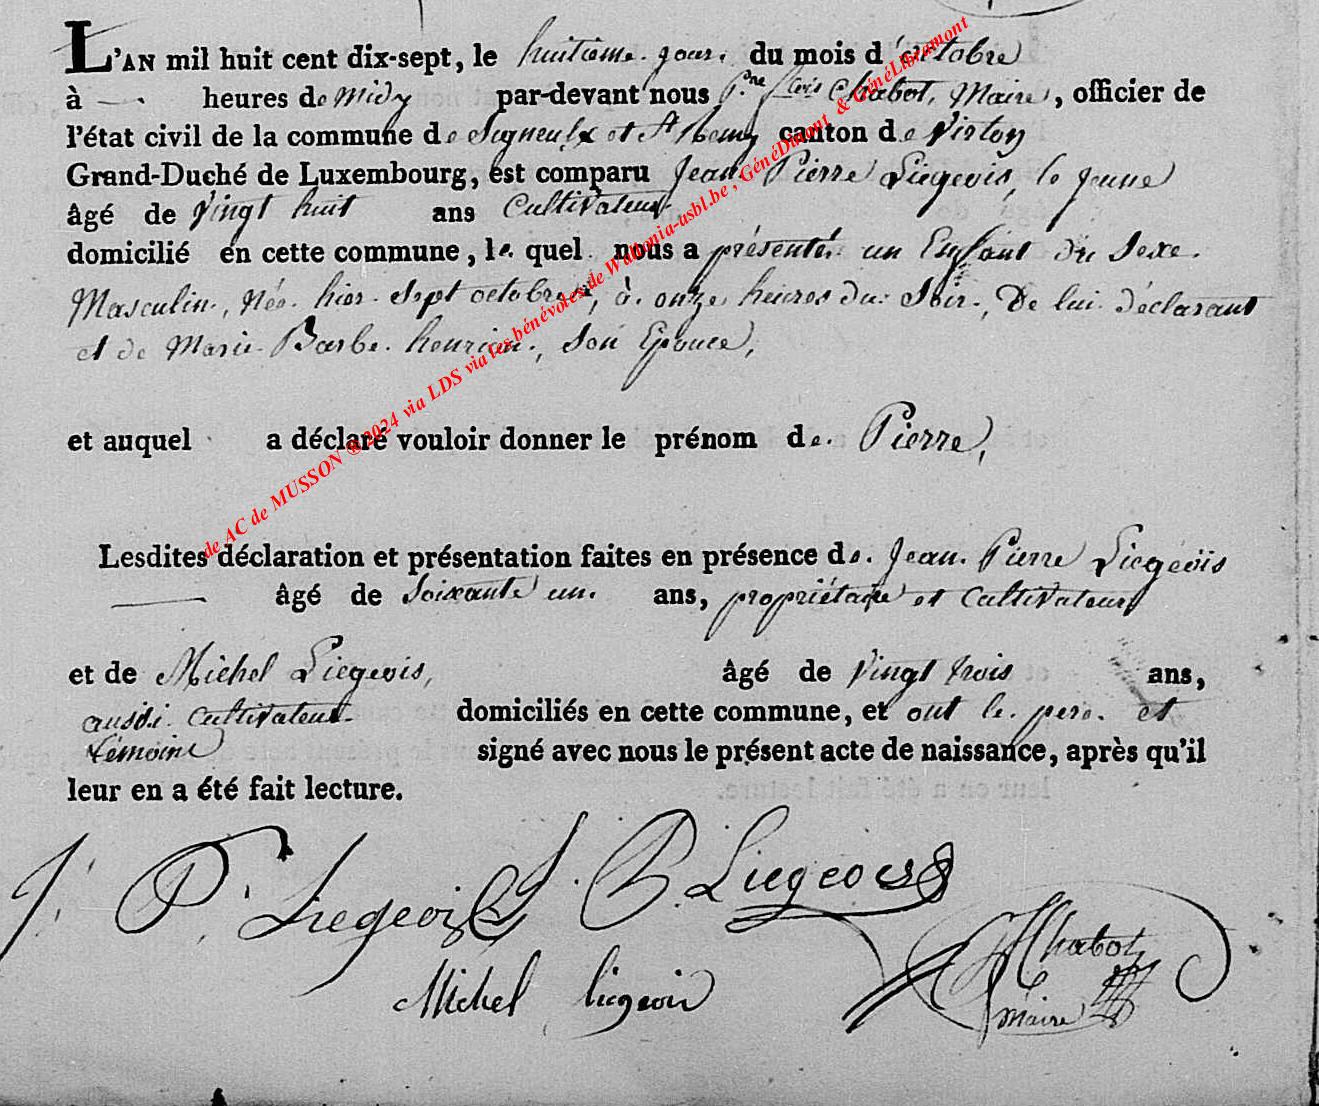 L'AN mil huit cent dix-sept, le huitieme jour. du mois d'octobre
à — heures de Midy par-devant nous Chabot, Maire, officier de
l'état civil de la commune de Signeulx et St Remy canton de Virton
Grand-Duché de Luxembourg, est comparu Jean Pierre Liegeois, le jeune
âgé de vingt huit ans Cultivateur
domicilié en cette commune, le quel nous a présenté un Enfant du Sexe
Masculin, Née hier Sept octobre, à onze heures du Soir, De lui déclarant
et de Marie Barbe henrion, Son Epouce,
et auquel a déclaré vouloir donner le prénom de. Pierre,
Lesdites déclaration et présentation faites en présence de. Jean Pierre Liegeois
— âgé de Soixante un ans, propriétaire et Cultivateur
et de Michel Liegeois, âgé de Vingt trois ans,
aussi Cultivateur domiciliés en cette commune, et ont le pere et
témoins signé avec nous le présent acte de naissance, après qu'il
leur en a été fait lecture.
J. P. Liegeois J. P. Liegeois
Michel liegeois
Chabot
Maire
de AC de MUSSON ®2024 via LDS via les bénévoles de Wallonia-asbl.be, GénéDinant & GénéLibramont